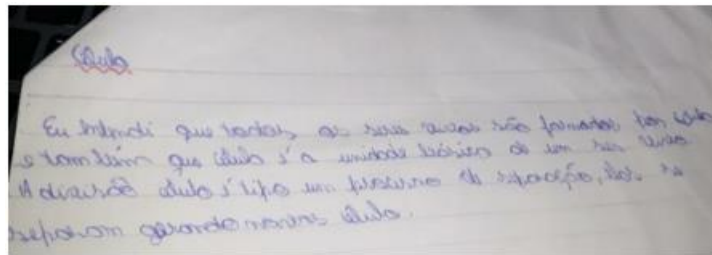 Célula
Eu Intendi que todos os seres vivos são formados por célula
e também que célula é a unidade básica de um ser vivo
A divisão célula é tipo um processo de separação, elas se
separam gerando novas célula.